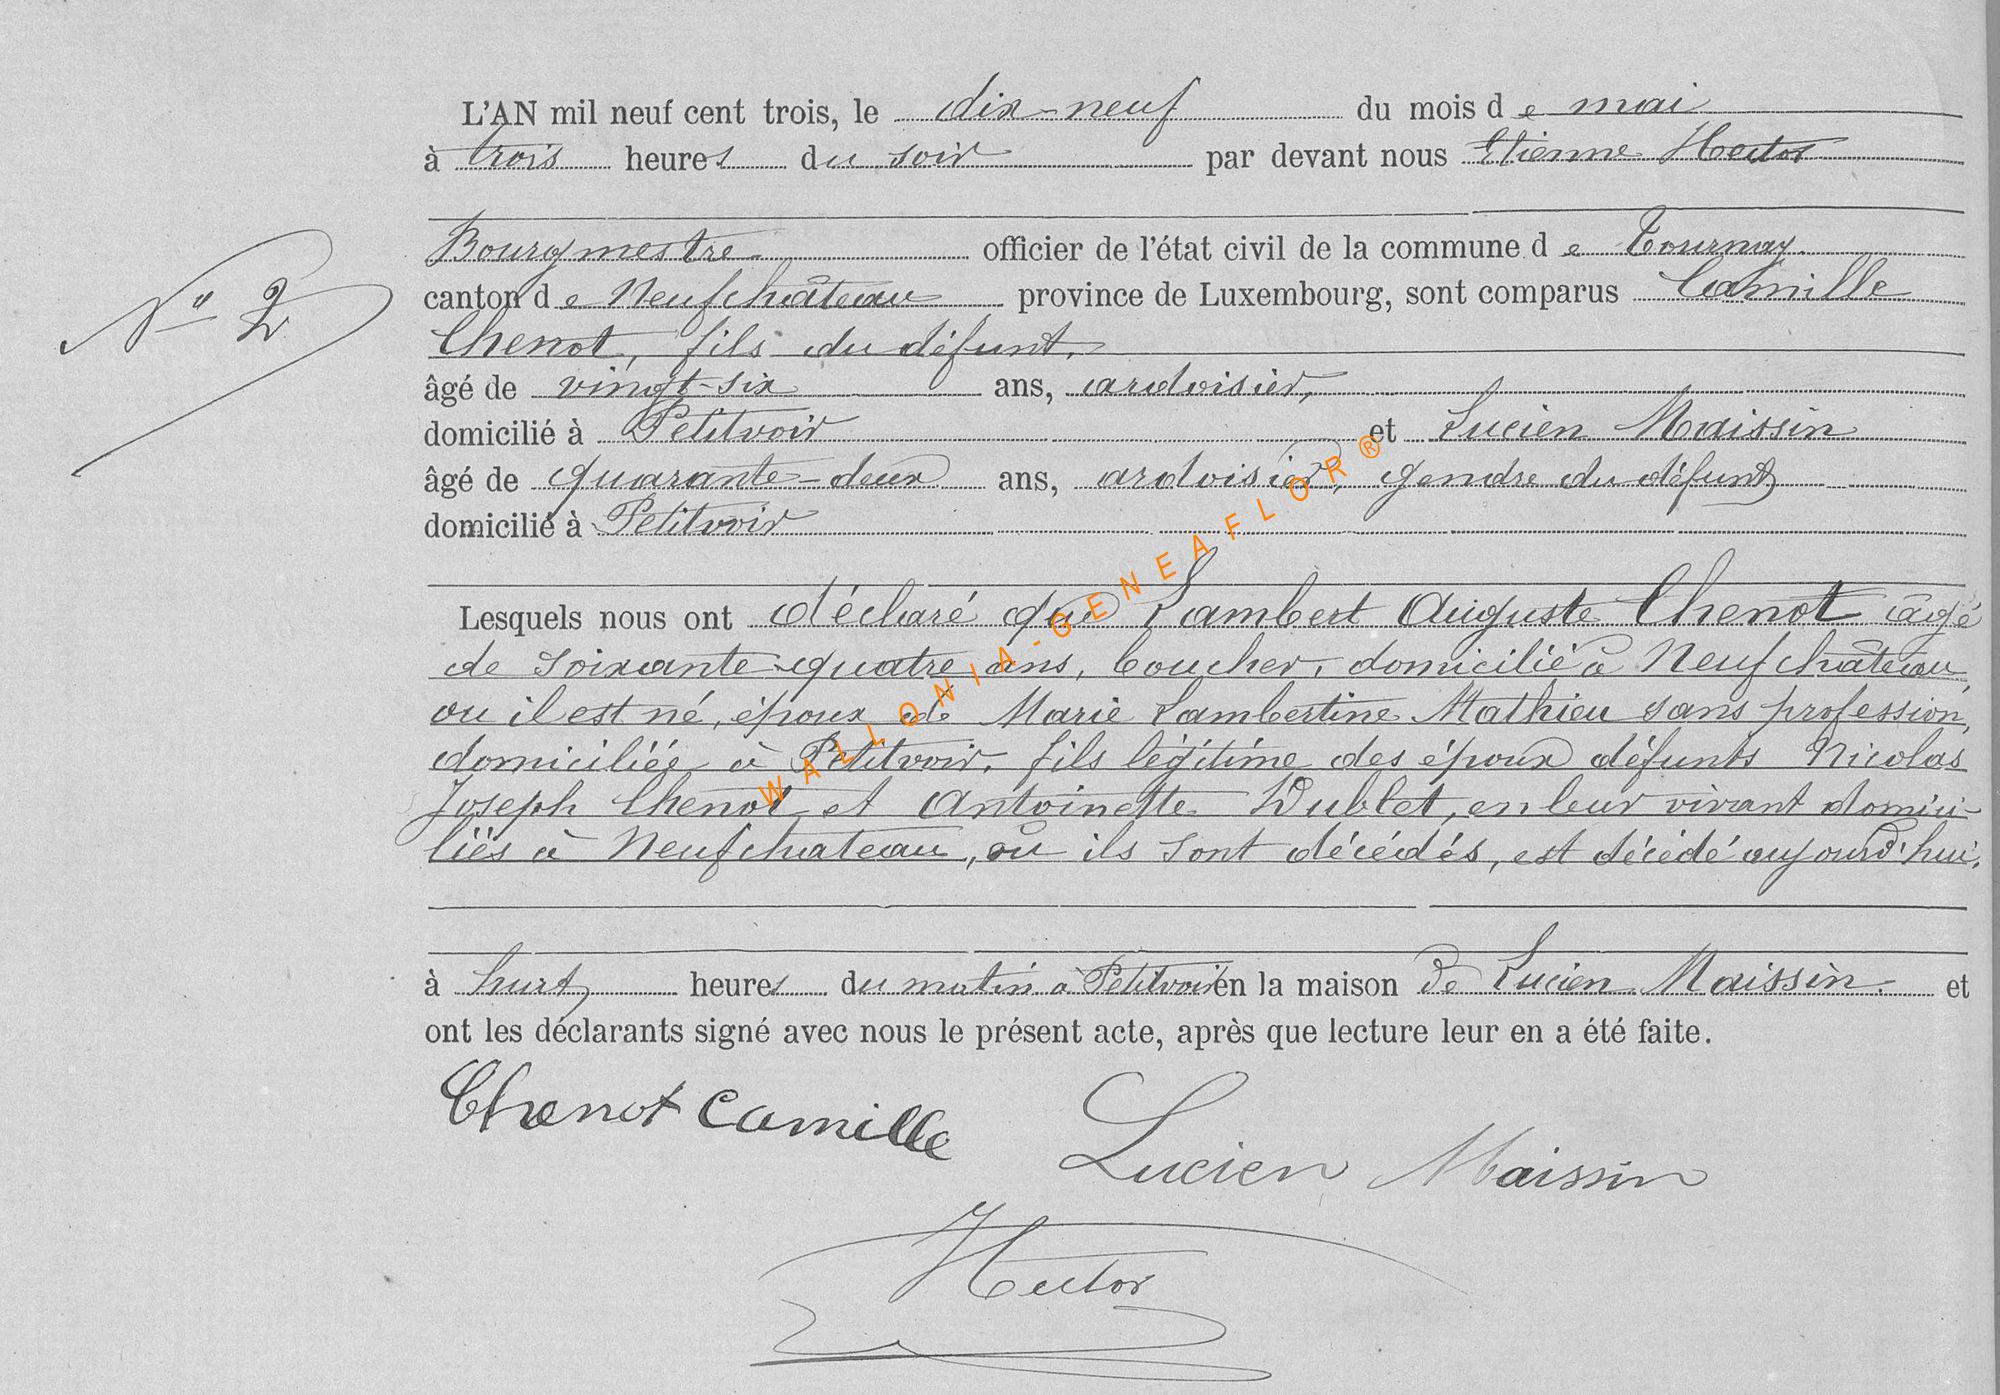 L'AN mil neuf cent trois, le dix-neuf du mois de mai
à trois heures du soir par devant nous Etienne Hector
Bourgmestre officier de l'état civil de la commune de Tournay
N° 2
canton de Neufchâteau province de Luxembourg, sont comparus Camille
Chenot, fils du défunt,
âgé de vingt-six ans, ardoisier,
domicilié à Petitvoir et Lucien Maissin
âgé de quarante-deux ans, ardoisier, gendre du défunt
domicilié à Petitvoir
Lesquels nous ont déclaré que Lambert Auguste Chenot âgé
de soixante-quatre ans, boucher, domicilié à Neufchâteau,
ou il est né, époux de Marie Lambertine Mathieu sans profession,
domiciliée à Petitvoir, fils légitime des époux défunts Nicolas
Joseph Chenot et Antoinette Dublet, en leur vivant domici-
liés à Neufchateau, où ils sont décédés, est décédé aujourd'hui,
à huit heures du matin à Petitvoir en la maison de Lucien Maissin. et
ont les déclarants signé avec nous le présent acte, après que lecture leur en a été faite.
Chenot Camille Lucien Maissin
Hector
WALLONIA-GENEAFLOR®